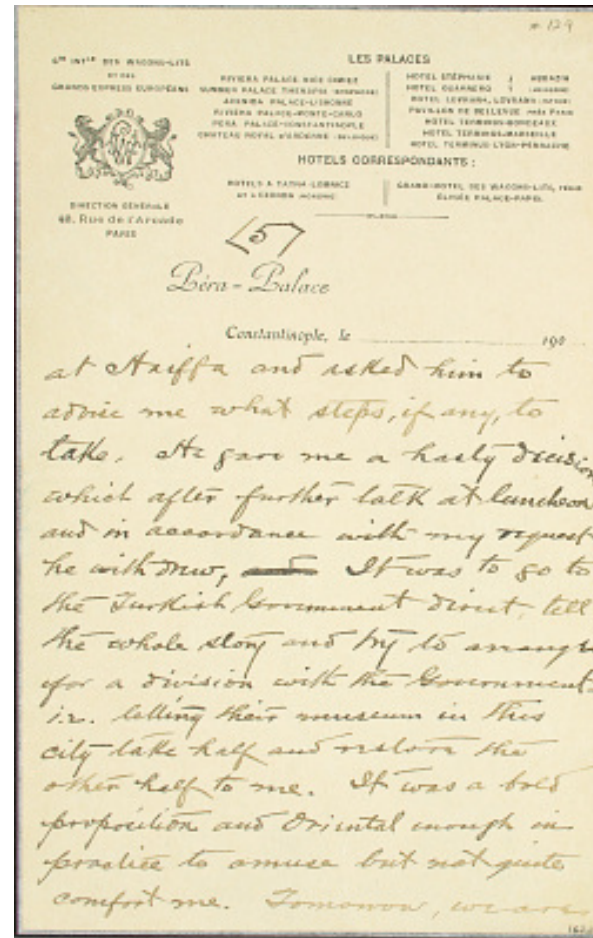 # 129
LES PALACES
Cie INTle DES WAGONS-LITS
ET DES
GRANDS EXPRESS EUROPÉENS
RIVIERA PALACE NICE CIMIEZ
SUMMER PALACE THERAPIA
AVENIDA PALACE-LISBONNE
RIVIERA PALACE-MONTE-CARLO
PERA PALACE-CONSTANTINOPLE
CHATEAU ROYAL D'ARDENNE
HOTEL STÉPHANIE } ABBAZIA
HOTEL QUARNERO }
HOTEL LOVRANA, LOVRANA
PAVILLON DE BELLEVUE PRÈS PARIS
HOTEL TERMINUS-BORDEAUX
HOTEL TERMINUS-MARSEILLE
HOTEL TERMINUS LYON-PERRACHE
HOTELS CORRESPONDANTS :
HOTELS A TATRA-LOMNICZ
GRAND-HOTEL DES WAGONS-LITS,
ÉLYSÉE PALACE-PARIS.
DIRECTION GÉNÉRALE
48, Rue de l'Arcade
PARIS
5
Péra-Palace
Constantinople, le 190
at Haiffa and asked him to
advise me what steps, if any, to
take. He gave me a hasty decision
which after further talk at luncheon
and in accordance with my request
he withdrew, It was to go to
the Turkish Government direct, tell
the whole story and try to arrange
for a division with the Government
i.e. letting their museum in this
city take half and restore the
other half to me. It was a bold
proposition and Oriental enough in
practice to amuse but not quite
comfort me. Tomorrow, we are